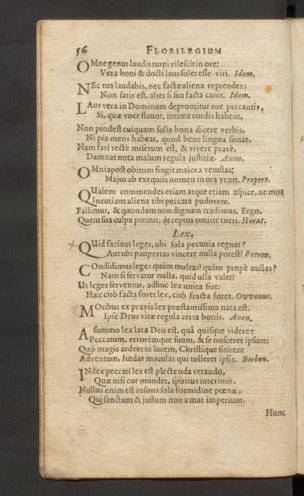 56 FLORILEGIUM
OMne genus laudis turpi vilescit in ore:
Vera boni & docti laus solet esse viri. Idem.
NEc tua laudabis, nec facta aliena reprendes:
Non satis est, alter si sua facta canit. Idem.
LAus vera in Dominum depromitur ore precantis,
Si, quæ voce fluunt, intima cordis habent.
Non prodest cuiquam solis bona dicere verbis.
Ni pia mens habeat, quod bene lingua sonat.
Nam fari rectè miserum est, & vivere pravè.
Damnat nota malum regula justitiæ. Auon.
OMnia post obitum fingit majora vetustas;
Majus ab exequiis nomen in ora venit. Propert.
QUalem commendes etiam atque etiam aspice, ne mox
Incutiant aliena tibi peccata pudorem.
Fallimur, & quondam non dignum tradimus. Ergo.
Quem sua culpa premit, deceptus omitte tueri. Horat.
Lex.
QUid faciant leges, ubi sola pecunia regnat?
Aut ubi paupertas vincere nulla potest? Petron.
COndidimus leges quàm multas? quàm propè nullas?
Nam si servatur nulla, quid ulla valet?
Ut leges serventur, adhuc lex unica fiat:
Hæc citò facta foret lex, citò fracta foret. Owenus.
MOribus ex pravis lex præstantissima nata est.
Ipse Deus vitæ regula certa bonis. Auon.
A summo lex lata Deo est, quâ quisque videret
Peccatum, errorémque suum, & se nosceret ipsum:
Quò magis arderent lucem, Christique sitirent
Adventum, fœdas maculas qui tolleret ipsis. Borbon.
INdex peccati lex est plectenda vetando,
Quæ nisi cor mundet, spiritus interimit.
Nullus enim est insons sola formidine pœnæ,
Qui sanctum & justum non amat imperium.
Hunc